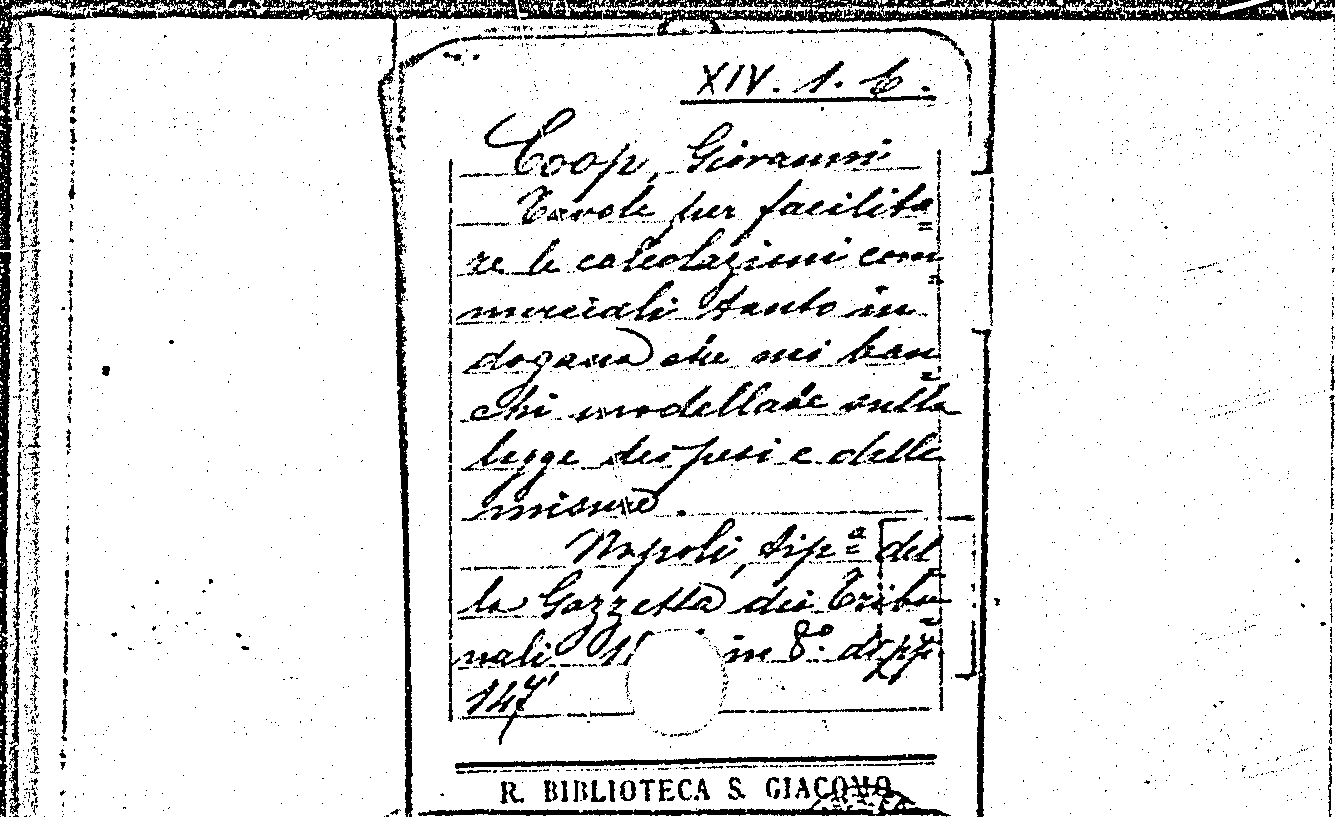 XIV. 1. 6.
Coop, Giovanni
Tavole per facilita=
re le calcolazioni com=
merciali tanto in
dogana che nei ban=
chi modellate sulla
legge dei pesi e delle
misure.
Napoli, tipª del=
la Gazzetta dei Tribu=
nali in 8.º di pp.
147
R. BIBLIOTECA S. GIACOMO